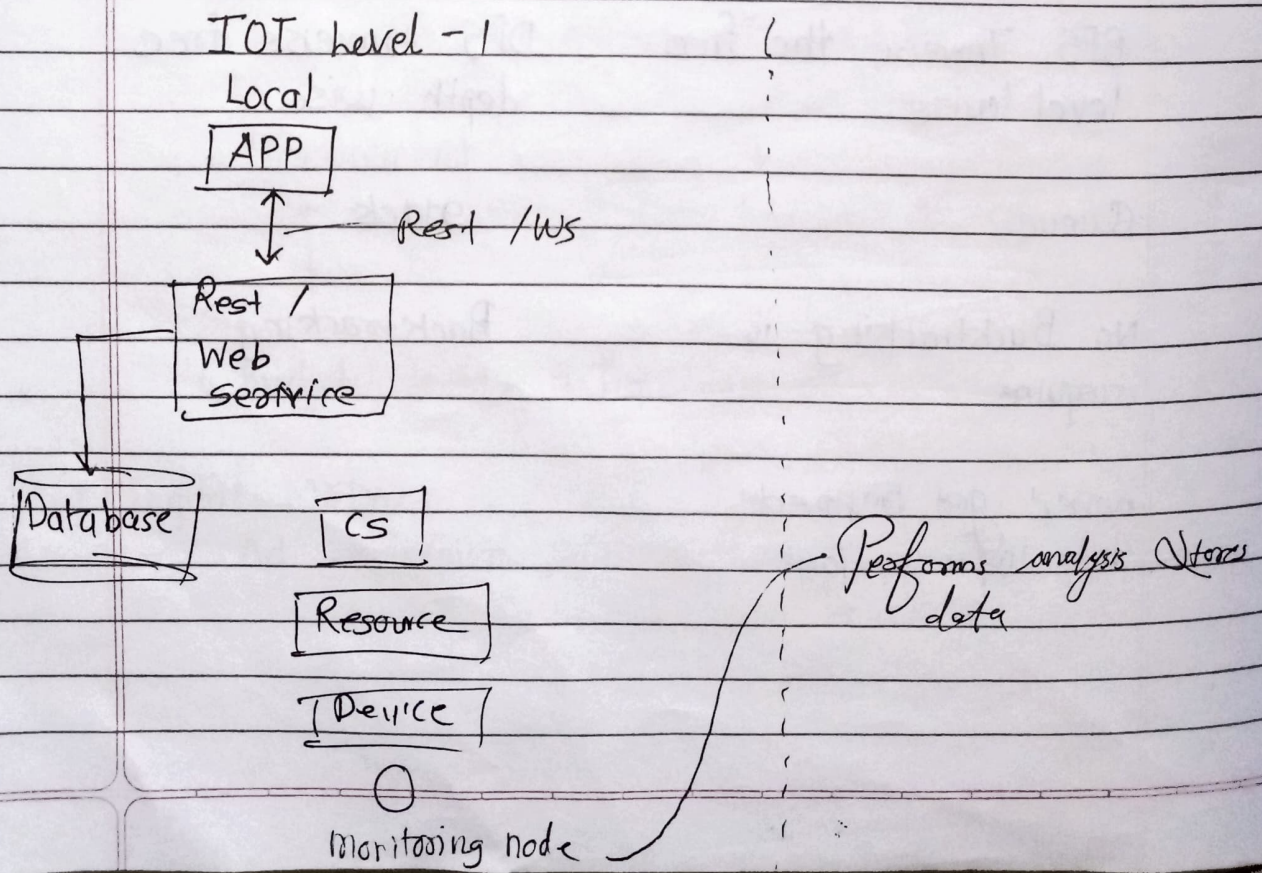 IOT Level - 1
Local
APP
Rest / WS
Rest /
Web
service
Database
CS
Resource
Device
Monitoring node
Performs analysis Stores
data